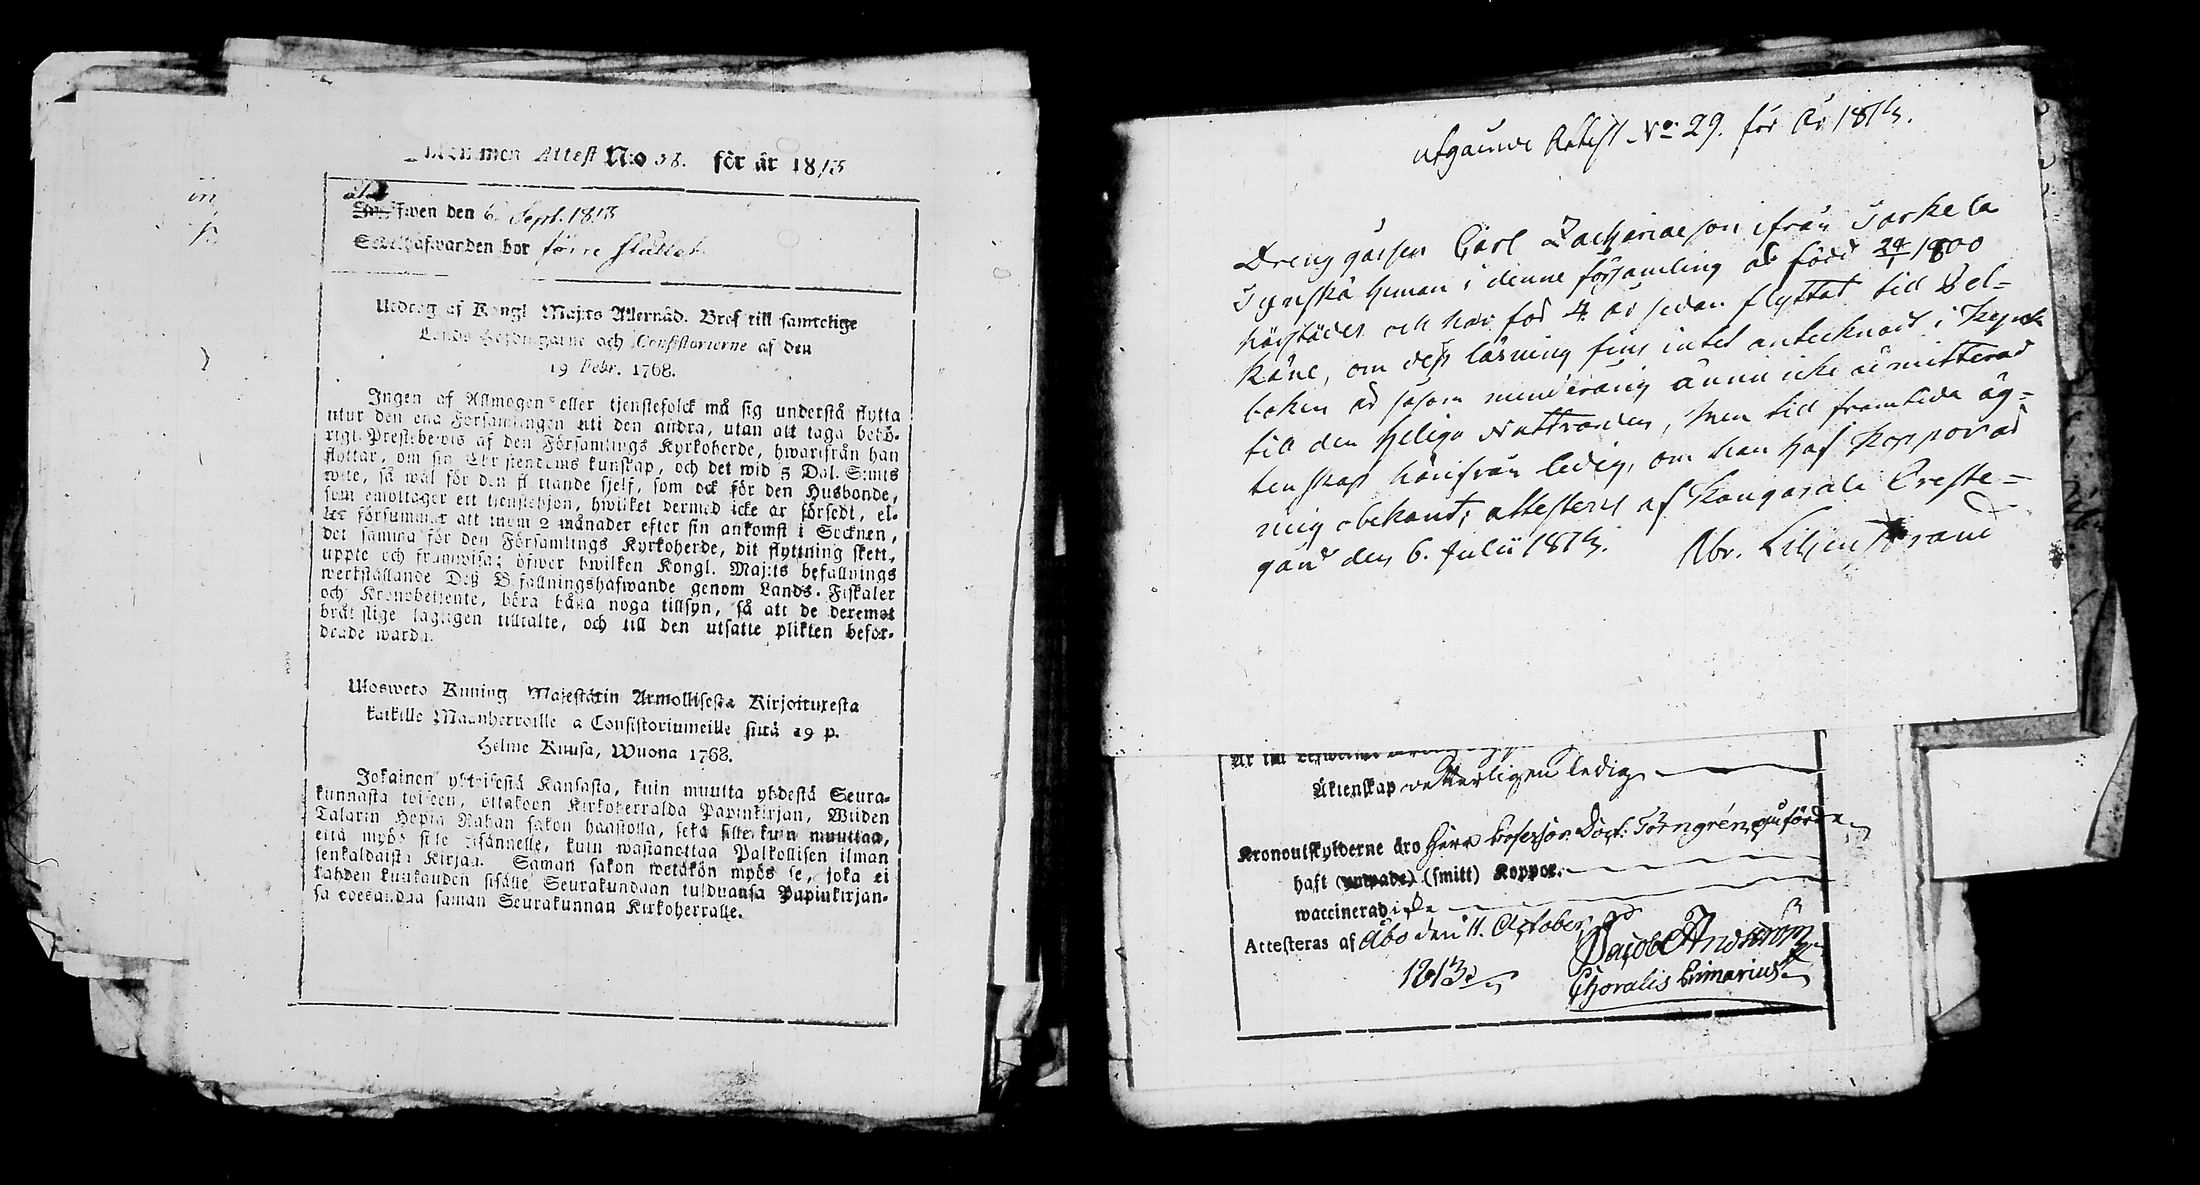 Attest N:o 58. för år 1813
den 6. Sept. 1813
Sedelhafwanden bor förre stället
Utdrag af Kongl Maj:ts Allernåd. Bref till samtelige
Lands Höfdingarne och Consistorierne af den
19 Febr. 1768.
Ingen af Allmogen eller tjenstefolck må sig understå flytta
utur den ena Församlingen uti den andra, utan att taga behö-
rigt Prestebewis af den Församlings Kyrkoherde, hwarifrån han
flyttar, om sin Christendoms kunskap, och det wid 5 Dal. S:mts
wite, så wäl för den flyttande sjelf, som ock för den Husbonde,
som emottager ett tienstehjon, hwilket dermed icke är försedt, el-
ler försummar att inom 2 månader efter sin ankomst i Socknen,
det samma för den Församlings Kyrkoherde, dit flyttning skett,
uppte och framwisa; öfwer hwilken Kongl. Maj:ts befallnings
werkställande Deß Befallningshafwande genom Lands-Fiskaler
och Kronobetiente, böra hålla noga tillsyn, så att de deremot
brätslige lagligen tilltalte, och till den utsatte plikten befor-
drade warda.
Ulosweto Kuning. Majestätin Armollisesta Kirjoituxesta
kaikille Maanherroille ja Consistoriumeille siitä 19 p.
Helme Kuusa, Wuona 1768.
Jokainen yhteisestä Kansasta, kuin muutta yhdestä Seura-
kunnasta toiseen, ottakoon Kirkoherralda Papinkirjan, Wiiden
Talarin Hopia Rahan sakon haastolla, sekä sille kuin muuttaa,
että myös sille isännelle, kuin wastanottaa Palkollisen ilman
senkaldaista Kirjaa. Saman sakon wetäkön myös se, joka ei
kahden kuukauden sisälle Seurakundaan tulduansa Papinkirjan-
sa edesanna saman Seurakunnan Kirkoherralle.
utgående Attest No 29. för År 1813.
Drenggåssen Carl Zachariae son ifrån Jarkela
Synskä heman i denne församling är född 24/1 1800
härstädes och har för 4. år sedan flyttat till Bel-
käne, om deß läsning fins intet antecknadt i Kyrck
boken är såsom minderårig ännu icke admitterad
till den Heliga Nattvarden, men till framtida äg-
tenskap härifrån ledig, om han haf Kopporna är
mig obekant; attesterar af Kangasala Preste-
gård den 6. Julii 1813. Abr. Liljenstrand
Äktenskap vetterligen ledig
Kronoutskylderne äro Herr Professor Doct: Törngrén påförde
haft (smitt) Koppor.
waccinerad icke
Attesteras af Åbo den 11. October
1813. Jacob Andström
Choralis Primarius